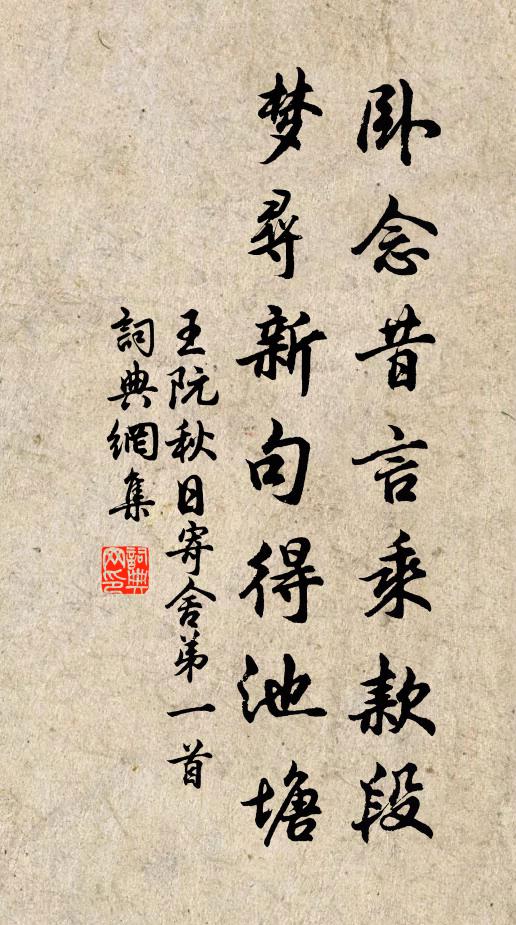 卧念昔言乘款段
梦尋新句得池塘
王阮秋日寄舍弟一首
詞典網集
詞典网印